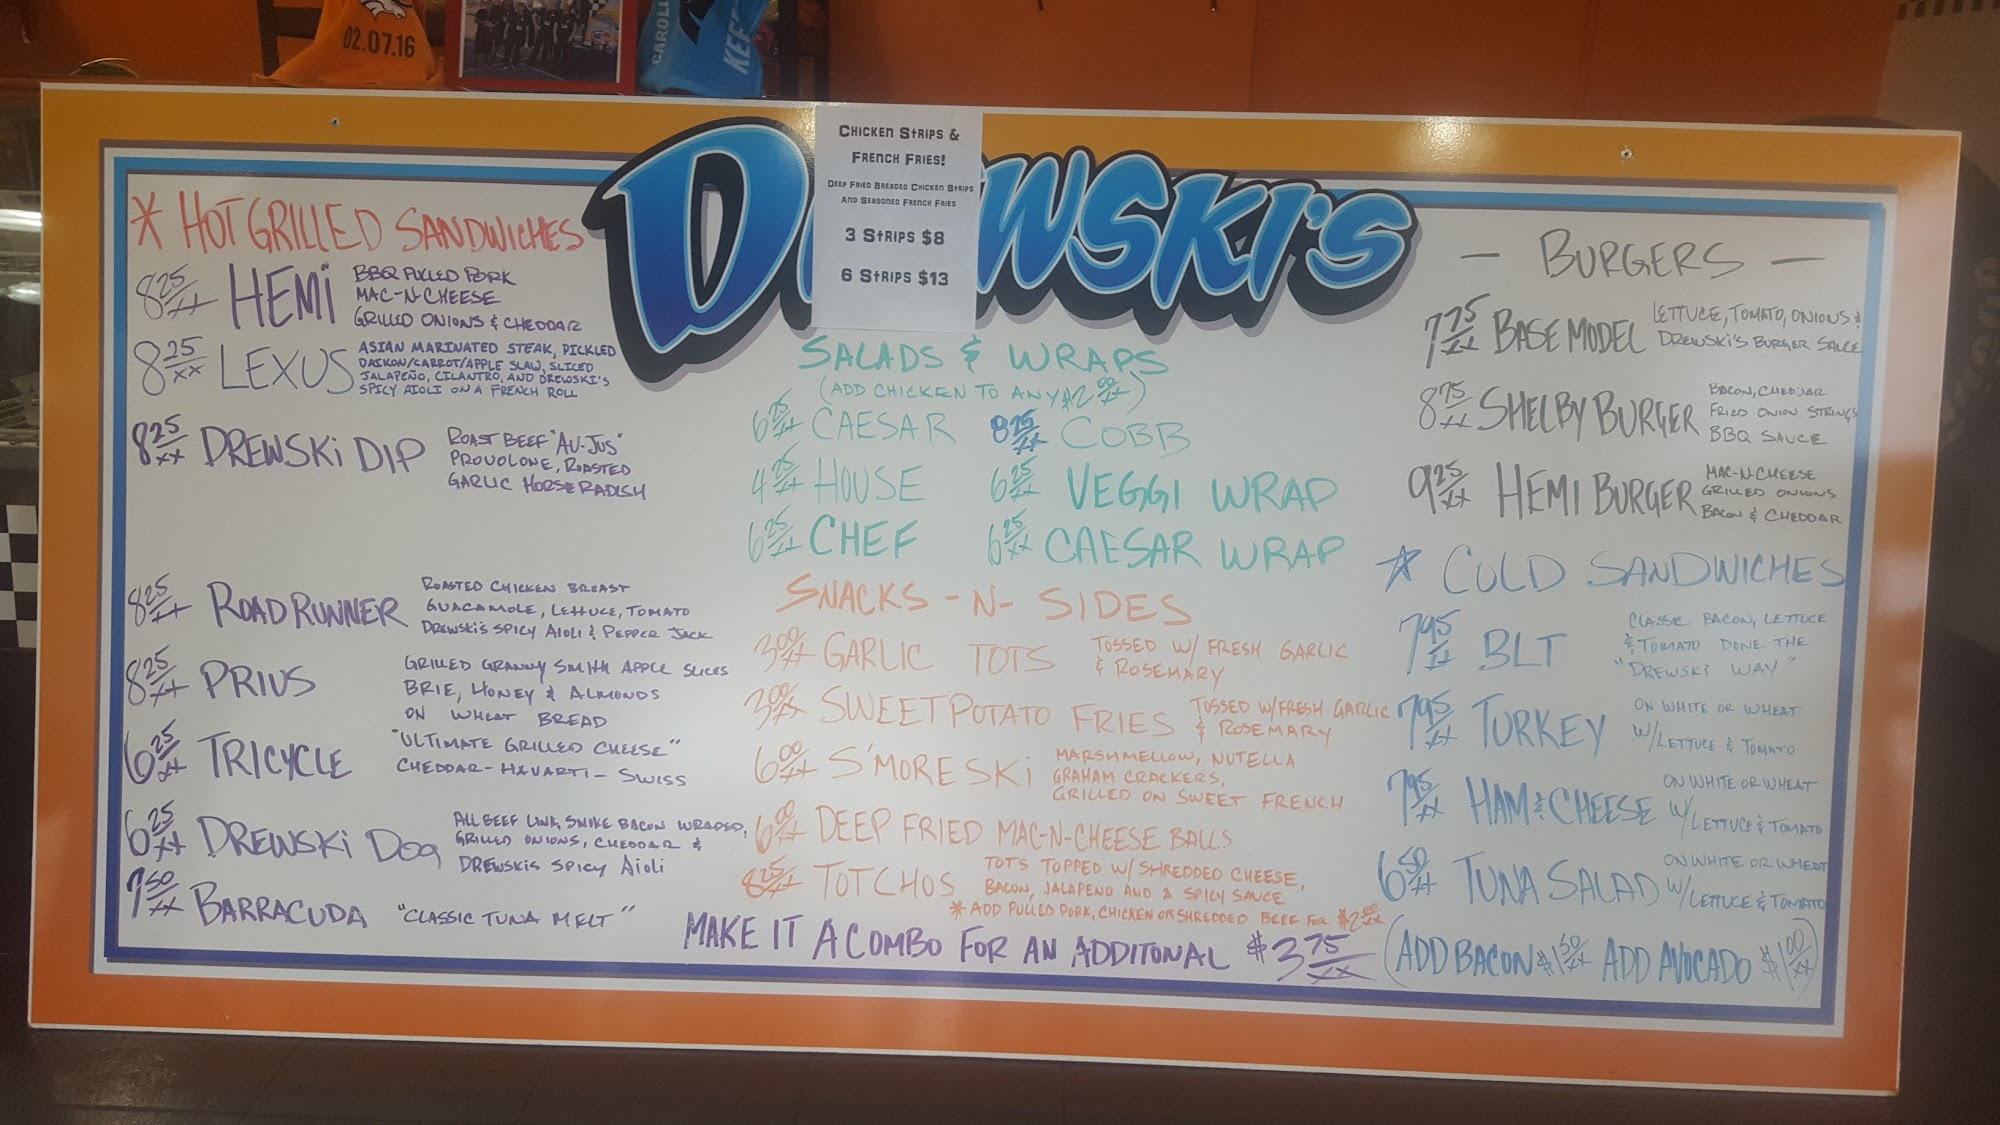 02.07.16
CAROL
KEE
DREWSKI'S
CHICKEN STRIPS &
FRENCH FRIES!
DEEP FRIED BREADED CHICKEN STRIPS
AND SEASONED FRENCH FRIES
3 STRIPS $8
6 STRIPS $13
* HOT GRILLED SANDWICHES
8 25/xx HEMI BBQ PULLED PORK
MAC-N-CHEESE
GRILLED ONIONS & CHEDDAR
8 25/xx LEXUS ASIAN MARINATED STEAK, PICKLED
DAIKON/CARROT/APPLE SLAW, SLICED
JALAPEÑO, CILANTRO, AND DREWSKI'S
SPICY AIOLI ON A FRENCH ROLL
8 25/xx DREWSKI DIP ROAST BEEF "AU-JUS"
PROVOLONE, ROASTED
GARLIC HORSERADISH
8 25/xx ROAD RUNNER ROASTED CHICKEN BREAST
GUACAMOLE, LETTUCE, TOMATO
DREWSKI'S SPICY AIOLI & PEPPER JACK
8 25/xx PRIUS GRILLED GRANNY SMITH APPLE SLICES
BRIE, HONEY & ALMONDS
ON WHEAT BREAD
6 25/xx TRICYCLE "ULTIMATE GRILLED CHEESE"
CHEDDAR-HAVARTI-SWISS
6 25/xx DREWSKI DOG ALL BEEF LINK, SMIKE BACON WRAPED,
GRILLED ONIONS, CHEDDAR &
DREWSKIS SPICY AIOLI
7 50/xx BARRACUDA "CLASSIC TUNA MELT"
SALADS & WRAPS
(ADD CHICKEN TO ANY $2 00/xx)
6 25/xx CAESAR 8 25/xx COBB
4 25/xx HOUSE 6 25/xx VEGGI WRAP
6 25/xx CHEF 6 25/xx CAESAR WRAP
SNACKS -N- SIDES
3 00/xx GARLIC TOTS TOSSED W/ FRESH GARLIC
& ROSEMARY
3 00/xx SWEET POTATO FRIES TOSSED W/FRESH GARLIC
& ROSEMARY
6 00/xx S'MORESKI MARSHMELLOW, NUTELLA
GRAHAM CRACKERS,
GRILLED ON SWEET FRENCH
6 00/xx DEEP FRIED MAC-N-CHEESE BALLS
8 25/xx TOTCHOS TOTS TOPPED W/ SHREDDED CHEESE,
BACON, JALAPENO AND A SPICY SAUCE
* ADD PULLED PORK, CHICKEN OR SHREDDED BEEF FOR $2 00/xx
MAKE IT A COMBO FOR AN ADDITONAL $3 75/xx
- BURGERS -
7 75/xx BASE MODEL LETTUCE, TOMATO, ONIONS &
DREWSKI'S BURGER SAUCE
8 75/xx SHELBY BURGER BACON, CHEDDAR
FRIED ONION STRINGS
BBQ SAUCE
9 25/xx HEMI BURGER MAC-N-CHEESE
GRILLED ONIONS
BACON & CHEDDAR
* COLD SANDWICHES
7 95/xx BLT CLASSIC BACON, LETTUCE
& TOMATO DONE THE
"DREWSKI WAY"
7 95/xx TURKEY ON WHITE OR WHEAT
W/LETTUCE & TOMATO
7 95/xx HAM & CHEESE ON WHITE OR WHEAT
W/LETTUCE & TOMATO
6 50/xx TUNA SALAD ON WHITE OR WHEAT
W/LETTUCE & TOMATO
(ADD BACON $1 50/xx ADD AVOCADO $1 00/xx)